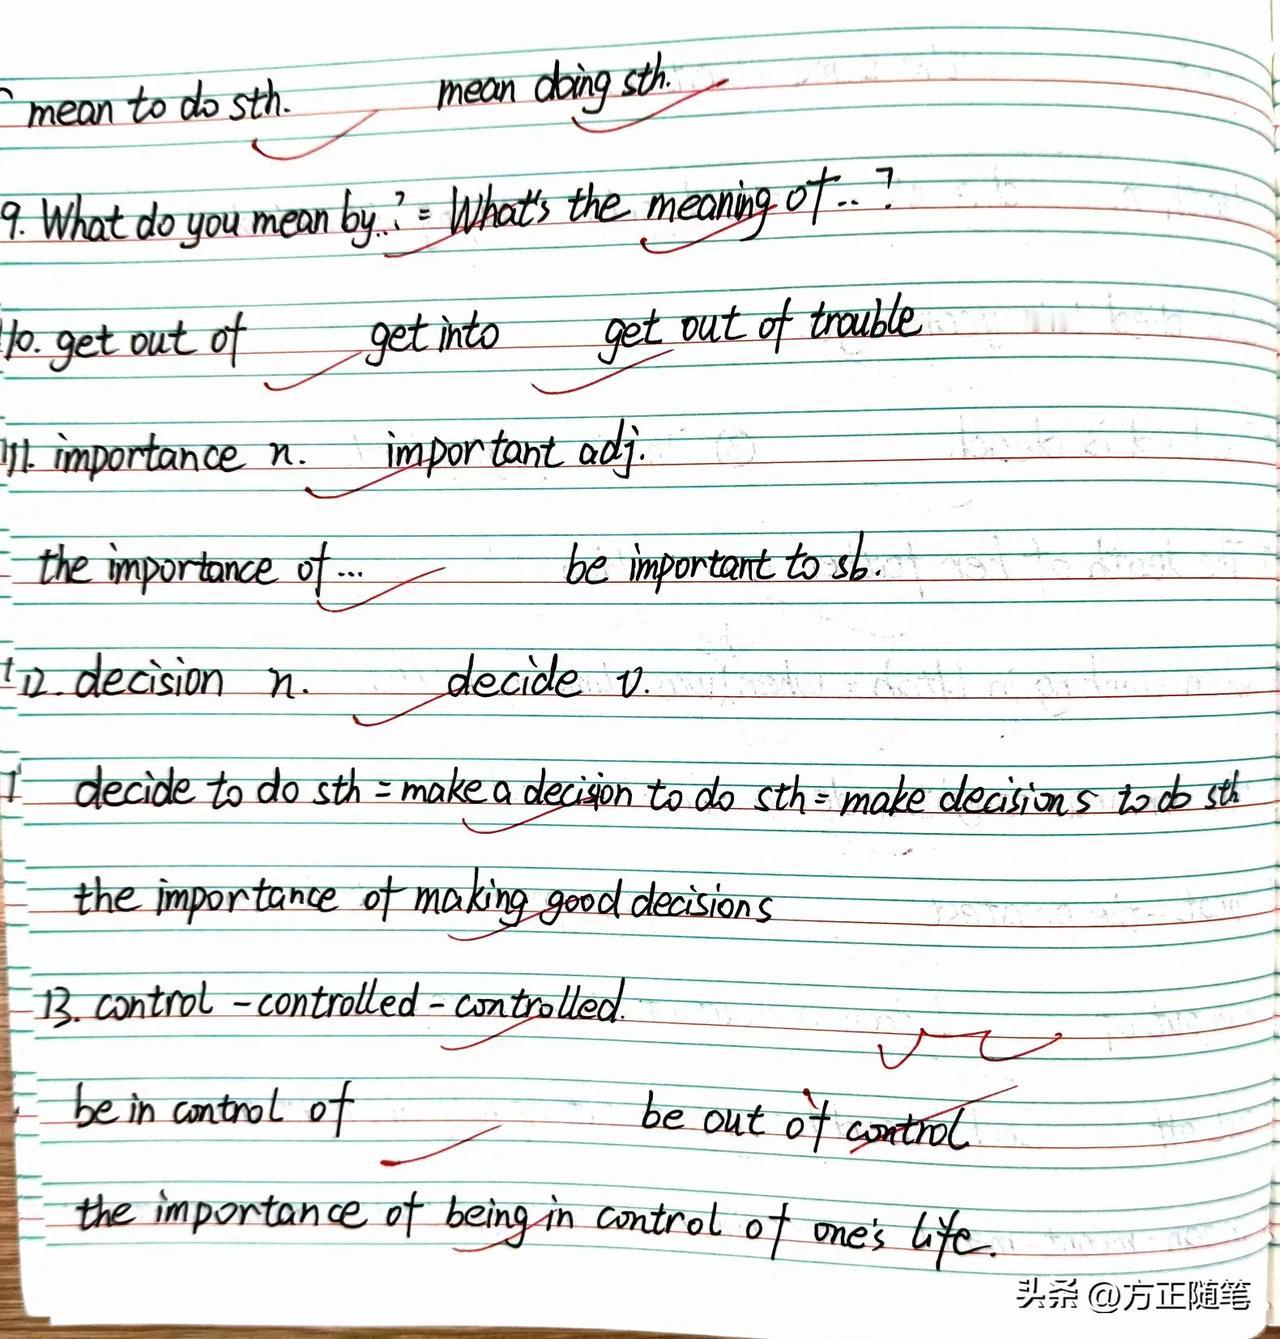 mean to do sth. mean doing sth.
9. What do you mean by..? = What's the meaning of..?
10. get out of get into get out of trouble
11. importance n. important adj.
the importance of... be important to sb.
12. decision n. decide v.
decide to do sth = make a decision to do sth = make decisions to do sth
the importance of making good decisions
13. control - controlled - controlled.
be in control of be out of control
the importance of being in control of one's life.
头条 @方正随笔